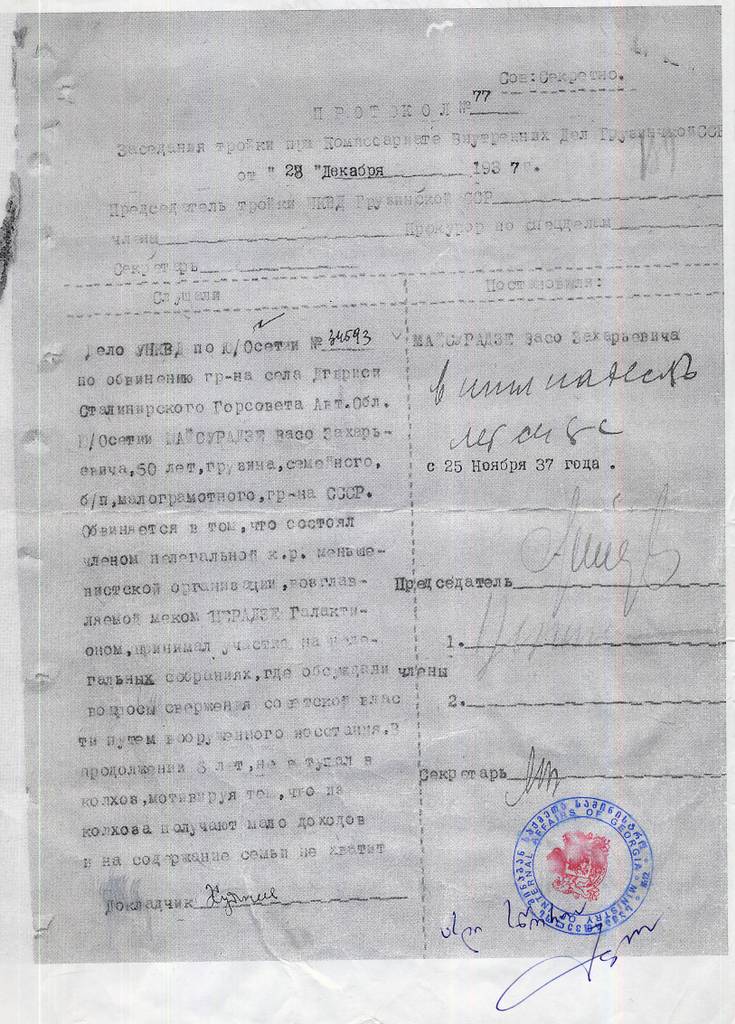 Сов:Секретно.
ПРОТОКОЛ № 77
Заседания тройки при Комиссариате Внутренних Дел Грузинской ССР
от " 28 "Декабря 1937 г.
Председатель тройки НКВД Грузинской ССР
члена Прокурор по спецделам
Секретарь
Слушали
Дело УНКВД по Ю/Осетии № 34593
по обвинению гр-на села Дгвриси
Сталинирского Горсовета Авт.Обл.
Ю/Осетии МАЙСУРАДЗЕ Васо Захарь-
евича, 50 лет, грузина, семейного,
б/п, малограмотного, гр-на СССР.
Обвиняется в том, что состоял
членом нелегальной к.р. меньше-
вистской организации, возглав-
ляемой меком Галакти-
оном, принимал участия на неле-
гальных собраниях, где обсуждали
вопросы свержения советской влас
ти путем вооруженного восстания. В
продолжении лет, не вступал в
колхоз, мотивируя тем, что из
колхоза получают мало доходов
и на содержание семьи не хватит
Докладчик
Постановили:
МАЙСУРАДЗЕ Васо Захарьевича
с 25 Ноября 37 года.
Председатель
члены
1.
2.
Секретарь
MINISTRY OF INTERNAL AFFAIRS OF GEORGIA